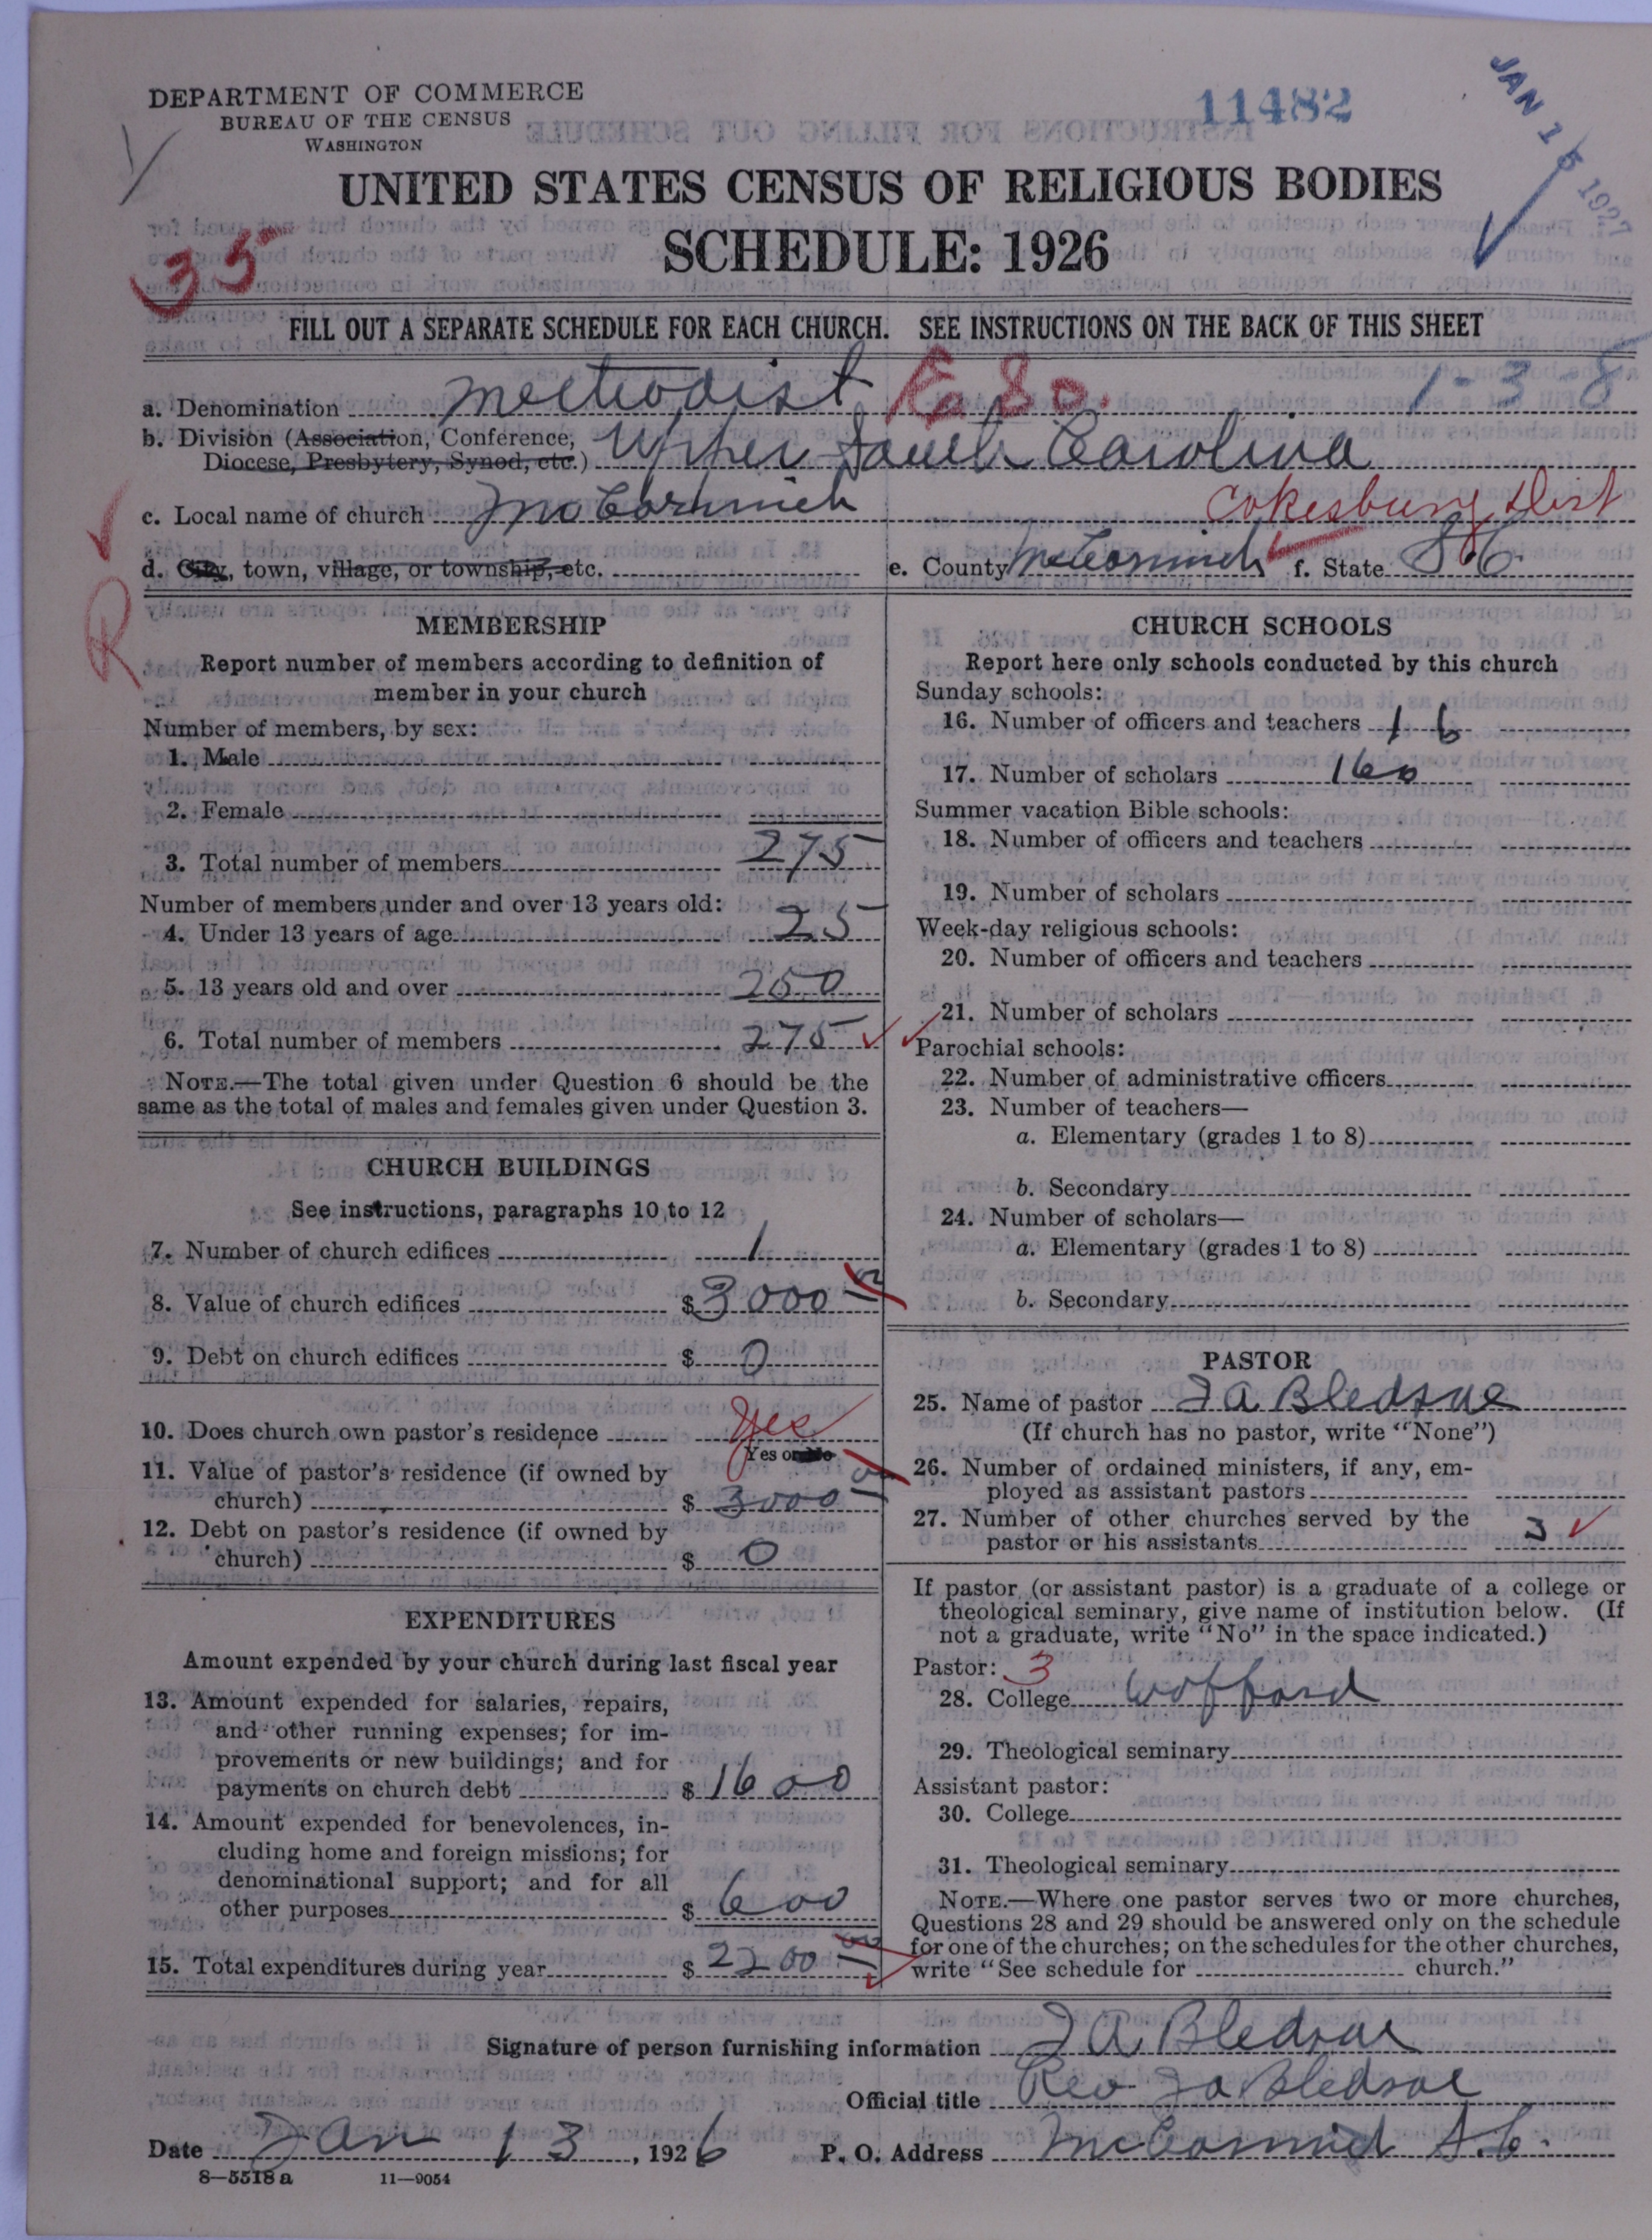 DEPARTMENT OF COMMERCE
BUREAU OF THE CENSUS
WASHINGTON
11482
JAN 15 1927
UNITED STATES CENSUS OF RELIGIOUS BODIES
SCHEDULE: 1926
35
FILL OUT A SEPARATE SCHEDULE FOR EACH CHURCH. SEE INSTRUCTIONS ON THE BACK OF THIS SHEET
a. Denomination Methodist 80. 1-3-8
b. Division (Association, Conference,
Diocese, Presbytery, Synod, etc.) Upper South Carolina
c. Local name of church McCormick Cokesbury Dist
d. City, town, village, or township, etc. e. County McCormick f. State S.C.
R
MEMBERSHIP
Report number of members according to definition of
member in your church
Number of members, by sex:
1. Male
2. Female
3. Total number of members 275
Number of members under and over 13 years old:
4. Under 13 years of age 25
5. 13 years old and over 250
6. Total number of members 275
NOTE.—The total given under Question 6 should be the
same as the total of males and females given under Question 3.
CHURCH BUILDINGS
See instructions, paragraphs 10 to 12
7. Number of church edifices 1
8. Value of church edifices $ 3000
9. Debt on church edifices $ 0
10. Does church own pastor's residence Yes
Yes or No
11. Value of pastor's residence (if owned by
church) $ 3000
12. Debt on pastor's residence (if owned by
church) $ 0
EXPENDITURES
Amount expended by your church during last fiscal year
13. Amount expended for salaries, repairs,
and other running expenses; for im-
provements or new buildings; and for
payments on church debt $ 1600
14. Amount expended for benevolences, in-
cluding home and foreign missions; for
denominational support; and for all
other purposes $ 600
15. Total expenditures during year $ 2200
CHURCH SCHOOLS
Report here only schools conducted by this church
Sunday schools:
16. Number of officers and teachers 16
17. Number of scholars 160
Summer vacation Bible schools:
18. Number of officers and teachers
19. Number of scholars
Week-day religious schools:
20. Number of officers and teachers
21. Number of scholars
Parochial schools:
22. Number of administrative officers
23. Number of teachers—
a. Elementary (grades 1 to 8)
b. Secondary
24. Number of scholars—
a. Elementary (grades 1 to 8)
b. Secondary
PASTOR
25. Name of pastor J A Bledsoe
(If church has no pastor, write "None")
26. Number of ordained ministers, if any, em-
ployed as assistant pastors
27. Number of other churches served by the
pastor or his assistants 3
If pastor (or assistant pastor) is a graduate of a college or
theological seminary, give name of institution below. (If
not a graduate, write "No" in the space indicated.)
Pastor: 3
28. College Wofford
29. Theological seminary
Assistant pastor:
30. College
31. Theological seminary
NOTE.—Where one pastor serves two or more churches,
Questions 28 and 29 should be answered only on the schedule
for one of the churches; on the schedules for the other churches,
write "See schedule for church."
Signature of person furnishing information J A Bledsoe
Official title Rev. J A Bledsoe
Date Jan 13, 1926 P. O. Address McCormick S.C.
8—5518 a 11—9054